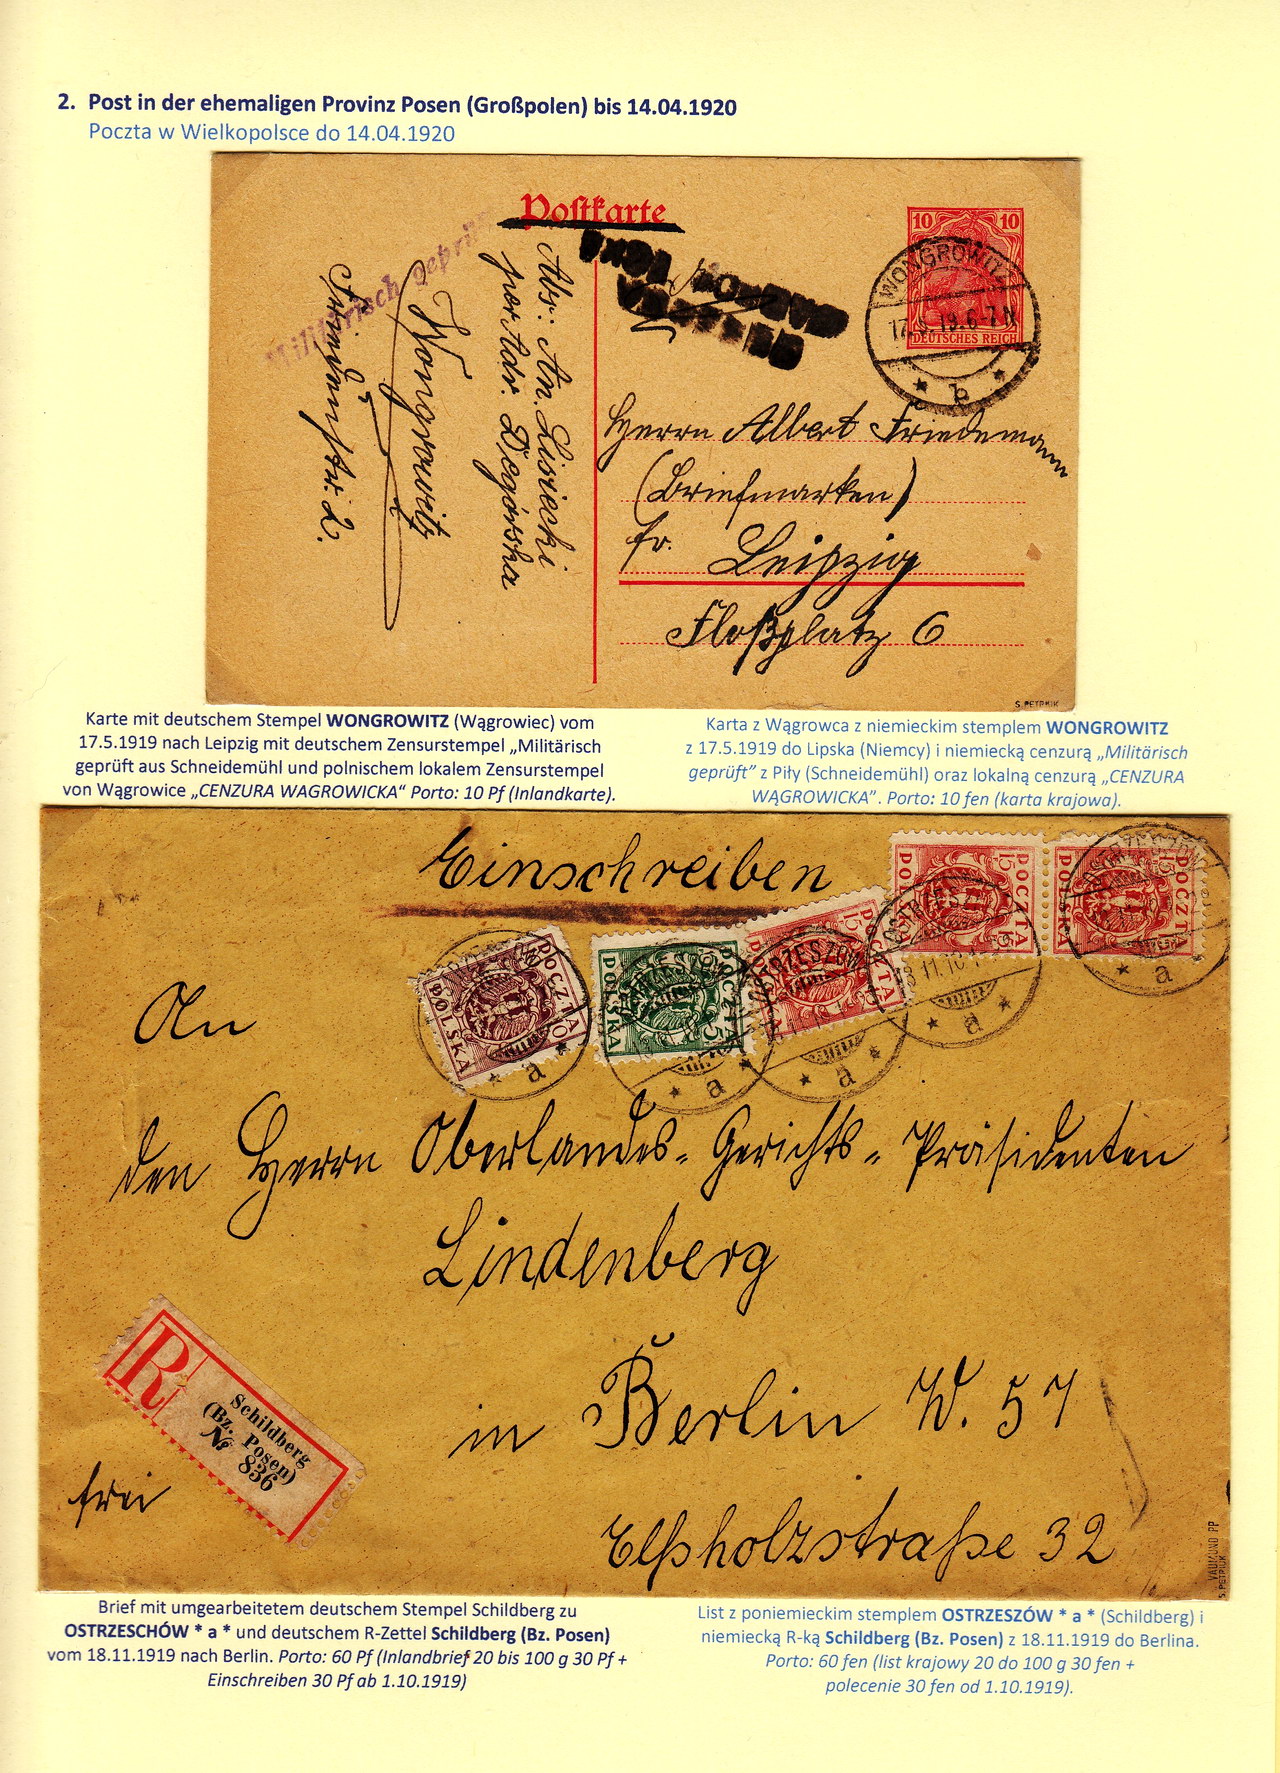 2. Post in der ehemaligen Provinz Posen (Großpolen) bis 14.04.1920
Poczta w Wielkopolsce do 14.04.1920
Postkarte
10 10
DEUTSCHES REICH
WONGROWITZ
* b *
Militärisch geprüft
Abs: An. Lisiecki
per Adr. Degórska
Wongrowitz
2.
Herrn Albert Friedemann
(Briefmarken)
fr. Leipzig
Floßplatz 6
S. PETRIUK
Karte mit deutschem Stempel WONGROWITZ (Wągrowiec) vom
17.5.1919 nach Leipzig mit deutschem Zensurstempel „Militärisch
geprüft aus Schneidemühl und polnischem lokalem Zensurstempel
von Wągrowice „CENZURA WAGROWICKA“ Porto: 10 Pf (Inlandkarte).
Karta z Wągrowca z niemieckim stemplem WONGROWITZ
z 17.5.1919 do Lipska (Niemcy) i niemiecką cenzurą „Militärisch
geprüft” z Piły (Schneidemühl) oraz lokalną cenzurą „CENZURA
WĄGROWICKA”. Porto: 10 fen (karta krajowa).
Einschreiben
POCZTA POLSKA
POCZTA 5 POLSKA
POCZTA 15 POLSKA
POCZTA 15 POLSKA
POCZTA 15 POLSKA
OSTRZESZÓW
* a *
An
den Herrn Oberlandes-Gerichts-Präsidenten
Lindenberg
in Berlin W. 57
Elßholzstraße 32
R
Schildberg
(Bz. Posen)
№ 836
frei
VAUMUND PP
S. PETRIUK
Brief mit umgearbeitetem deutschem Stempel Schildberg zu
OSTRZESCHÓW * a * und deutschem R-Zettel Schildberg (Bz. Posen)
vom 18.11.1919 nach Berlin. Porto: 60 Pf (Inlandbrief 20 bis 100 g 30 Pf +
Einschreiben 30 Pf ab 1.10.1919)
List z poniemieckim stemplem OSTRZESZÓW * a * (Schildberg) i
niemiecką R-ką Schildberg (Bz. Posen) z 18.11.1919 do Berlina.
Porto: 60 fen (list krajowy 20 do 100 g 30 fen +
polecenie 30 fen od 1.10.1919).